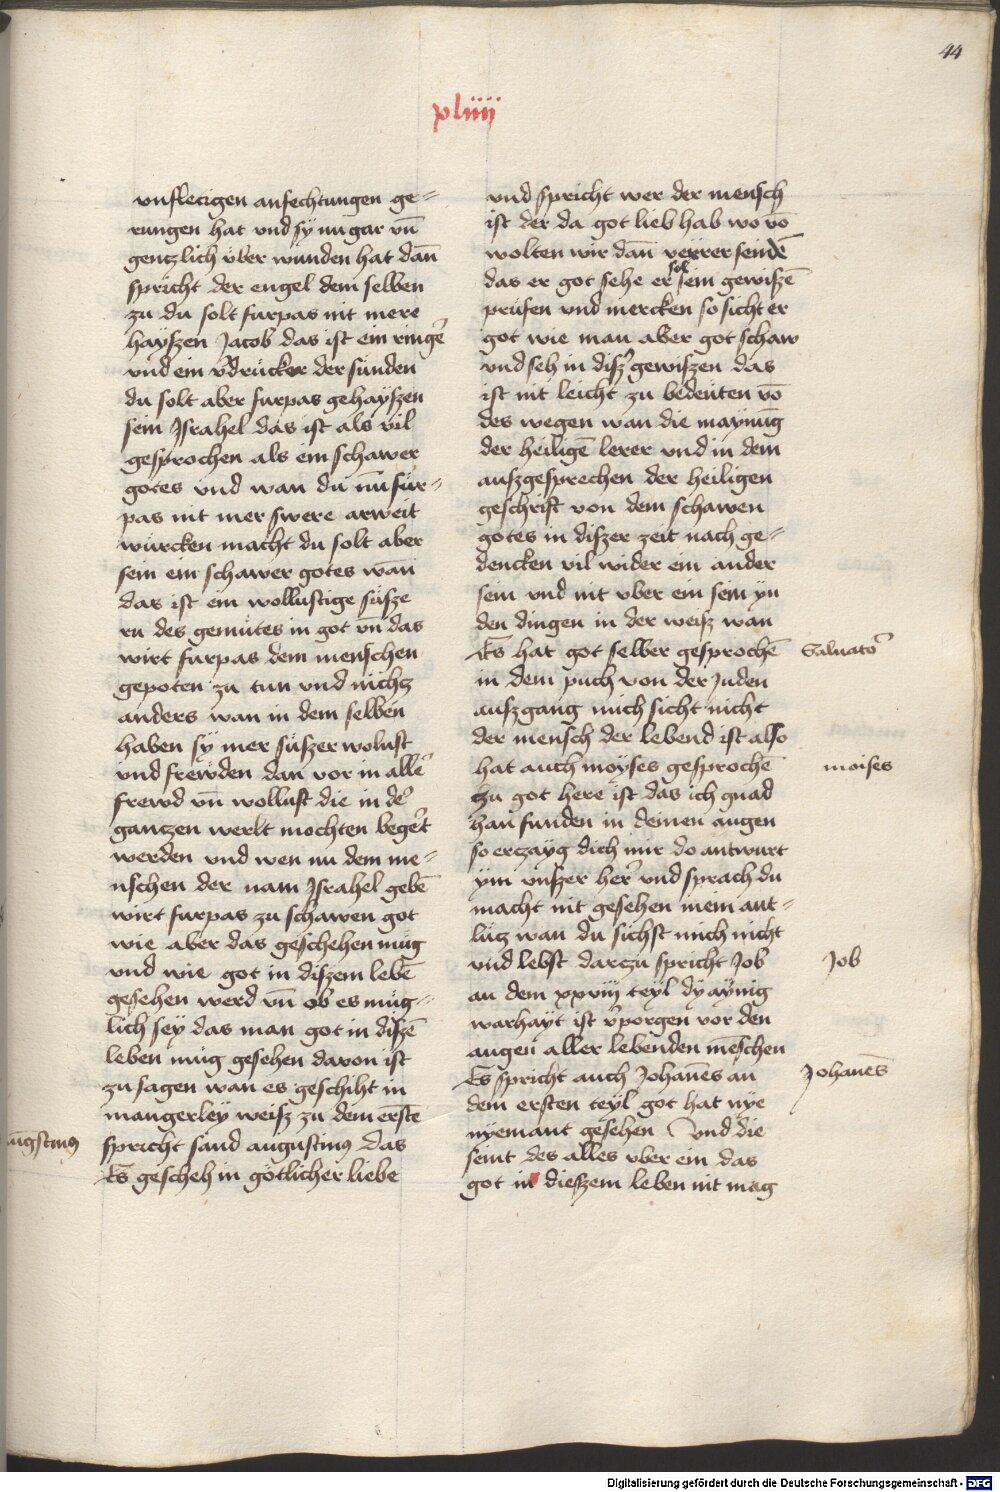 44
xliiij
vnfletigen anfechtungen ge⸗
rungen hat vnd sy nu gar vn̄
gentzlich vber wunden hat dan̄
spricht der engel dem selben
zu du solt furpas nit mere
hayszen Jacob das ist ein ringer̄
vnd ein v̄drucker der sunden
du solt aber furpas gehayszen
sein Jsrahel das ist als vil
gesprochen als ein schawer
gotes vnd wan du nu fur⸗
pas nit mer swere arweit
wurcken macht du solt aber
sein ein schawer gotes wan
das ist ein wollustige susze
ru des gemutes in got vn̄ das
wirt furpas dem menschen
gepoten zu tun vnd nichtz
anders wan in dem selben
haben sy mer suszer wolust
vnd frewden dan vor in allē
frewd vn̄ wollust die in dē
gantzen werlt mochten begert
werden vnd wen nu dem me⸗
nschen der nam Jsrahel gebē
wirt furpas zu schawen got
wie aber das geschehen mug
vnd wie got in diszem lebē
gesehen werd vn̄ ob es mug⸗
lich sey das man got in diszē
leben mug gesehen davon ist
zu sagen wan es geschiht in
mangerley weisz zu dem erstē
augstinus spricht sand augustinus das
Es gescheh in götlicher liebe
vnd spricht wer der mensch
ist der da got lieb hab wo vō
wolten wir dan verrer sendē
das er got sehe er sol sein gewiszē
prufen vnd mercken so sicht er
got wie man aber got schaw
vnd seh in disz gewiszen das
ist nit leicht zu bedeuten vō
des wegen wan die maynūg
der heiligē lerer vnd in dem
auszgesprechen der heiligen
geschrift von dem schawen
gotes in diszer zeit nach ge⸗
dencken vil wider ein ander
sein vnd nit vber ein sein yn
den dingen in der weisz wan
Es hat got selber gesprochē Saluator
in dem puch von der Juden
auszgang mich sicht nicht
der mensch der lebend ist also
hat auch moyses gesprochē moises
zu got here ist das ich gnad
han funden in deinen augen
so erczayg dich mir do antwurt
ym vnszer her vnd sprach du
macht nit gesehen mein ant⸗
lütz wan du sichst mich nicht
vnd lebst darczu spricht Job Job
an dem xxviij teyl dy aynig
warhayt ist v̄porgen vor den
augen aller lebenden mēschen
Es spricht auch Johanēs an Johanēs
dem ersten teyl got hat nye
nyemant gesehen Vnd die
seint des alles vber ein das
got in dieszem leben nit mag
Digitalisierung gefördert durch die Deutsche Forschungsgemeinschaft - DFG